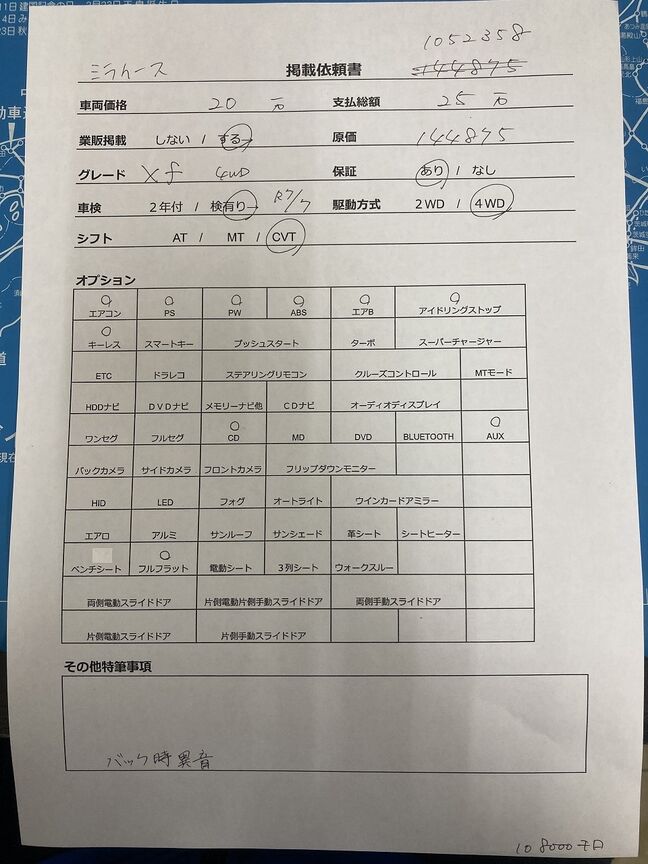 1052358
ミライース 掲載依頼書 144875
車両価格 20 万 支払総額 25 万
業販掲載 しない / する 原価 144875
グレード Xf 4WD 保証 あり / なし
車検 2年付 / 検有り→ R7/7 駆動方式 2WD / 4WD
シフト AT / MT / CVT
オプション
○ ○ ○ ○ ○ ○
エアコン PS PW ABS エアB アイドリングストップ
○
キーレス スマートキー プッシュスタート ターボ スーパーチャージャー
ETC ドラレコ ステアリングリモコン クルーズコントロール MTモード
HDDナビ DVDナビ メモリーナビ他 CDナビ オーディオディスプレイ
○ ○
ワンセグ フルセグ CD MD DVD BLUETOOTH AUX
バックカメラ サイドカメラ フロントカメラ フリップダウンモニター
HID LED フォグ オートライト ウインカードアミラー
エアロ アルミ サンルーフ サンシェード 革シート シートヒーター
○
ベンチシート フルフラット 電動シート 3列シート ウォークスルー
両側電動スライドドア 片側電動片側手動スライドドア 両側手動スライドドア
片側電動スライドドア 片側手動スライドドア
その他特筆事項
バック時異音